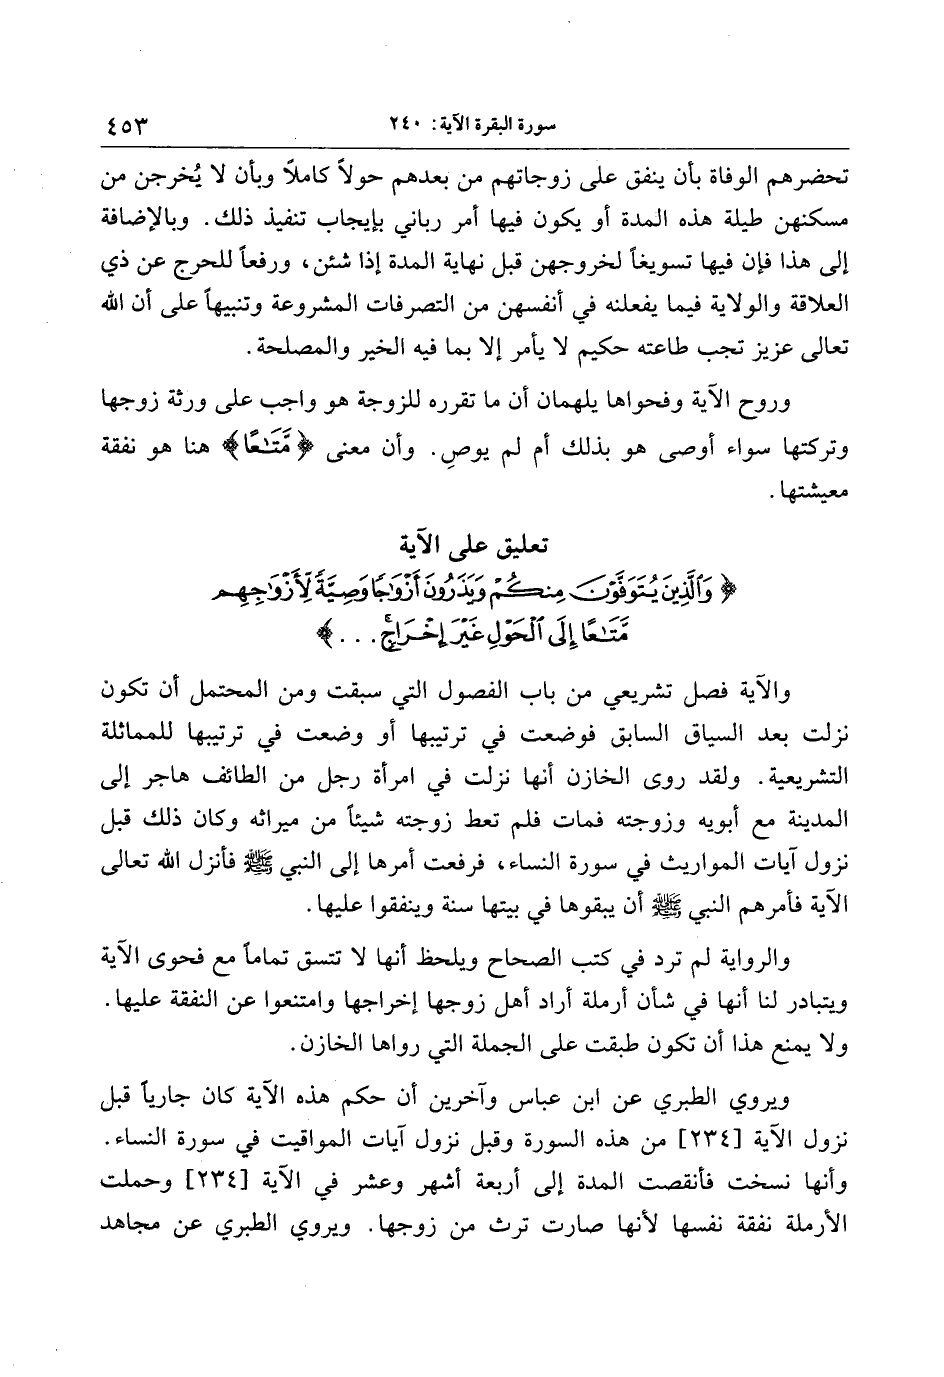 سورة البقرة الآية: ٢٤٠ ٤٥٣
تحضرهم الوفاة بأن ينفق على زوجاتهم من بعدهم حولاً كاملاً وبأن لا يُخرجن من
مسكنهن طيلة هذه المدة أو يكون فيها أمر رباني بإيجاب تنفيذ ذلك. وبالإضافة
إلى هذا فإن فيها تسويغاً لخروجهن قبل نهاية المدة إذا شئن، ورفعاً للحرج عن ذي
العلاقة والولاية فيما يفعلنه في أنفسهن من التصرفات المشروعة وتنبيهاً على أن الله
تعالى عزيز تجب طاعته حكيم لا يأمر إلا بما فيه الخير والمصلحة.
وروح الآية وفحواها يلهمان أن ما تقرره للزوجة هو واجب على ورثة زوجها
وتركتها سواء أوصى هو بذلك أم لم يوصِ. وأن معنى ﴿مَّتَٰعًا﴾ هنا هو نفقة
معيشتها.
تعليق على الآية
﴿وَٱلَّذِينَ يُتَوَفَّوۡنَ مِنكُمۡ وَيَذَرُونَ أَزۡوَٰجٗا وَصِيَّةٗ لِّأَزۡوَٰجِهِم
مَّتَٰعًا إِلَى ٱلۡحَوۡلِ غَيۡرَ إِخۡرَاجٖۚ ...﴾
والآية فصل تشريعي من باب الفصول التي سبقت ومن المحتمل أن تكون
نزلت بعد السياق السابق فوضعت في ترتيبها أو وضعت في ترتيبها للمماثلة
التشريعية. ولقد روى الخازن أنها نزلت في امرأة رجل من الطائف هاجر إلى
المدينة مع أبويه وزوجته فمات فلم تعط زوجته شيئاً من ميراثه وكان ذلك قبل
نزول آيات المواريث في سورة النساء، فرفعت أمرها إلى النبي ﷺ فأنزل الله تعالى
الآية فأمرهم النبي ﷺ أن يبقوها في بيتها سنة وينفقوا عليها.
والرواية لم ترد في كتب الصحاح ويلحظ أنها لا تتسق تماماً مع فحوى الآية
ويتبادر لنا أنها في شأن أرملة أراد أهل زوجها إخراجها وامتنعوا عن النفقة عليها.
ولا يمنع هذا أن تكون طبقت على الجملة التي رواها الخازن.
ويروي الطبري عن ابن عباس وآخرين أن حكم هذه الآية كان جارياً قبل
نزول الآية [٢٣٤] من هذه السورة وقبل نزول آيات المواقيت في سورة النساء.
وأنها نسخت فأنقصت المدة إلى أربعة أشهر وعشر في الآية [٢٣٤] وحملت
الأرملة نفقة نفسها لأنها صارت ترث من زوجها. ويروي الطبري عن مجاهد